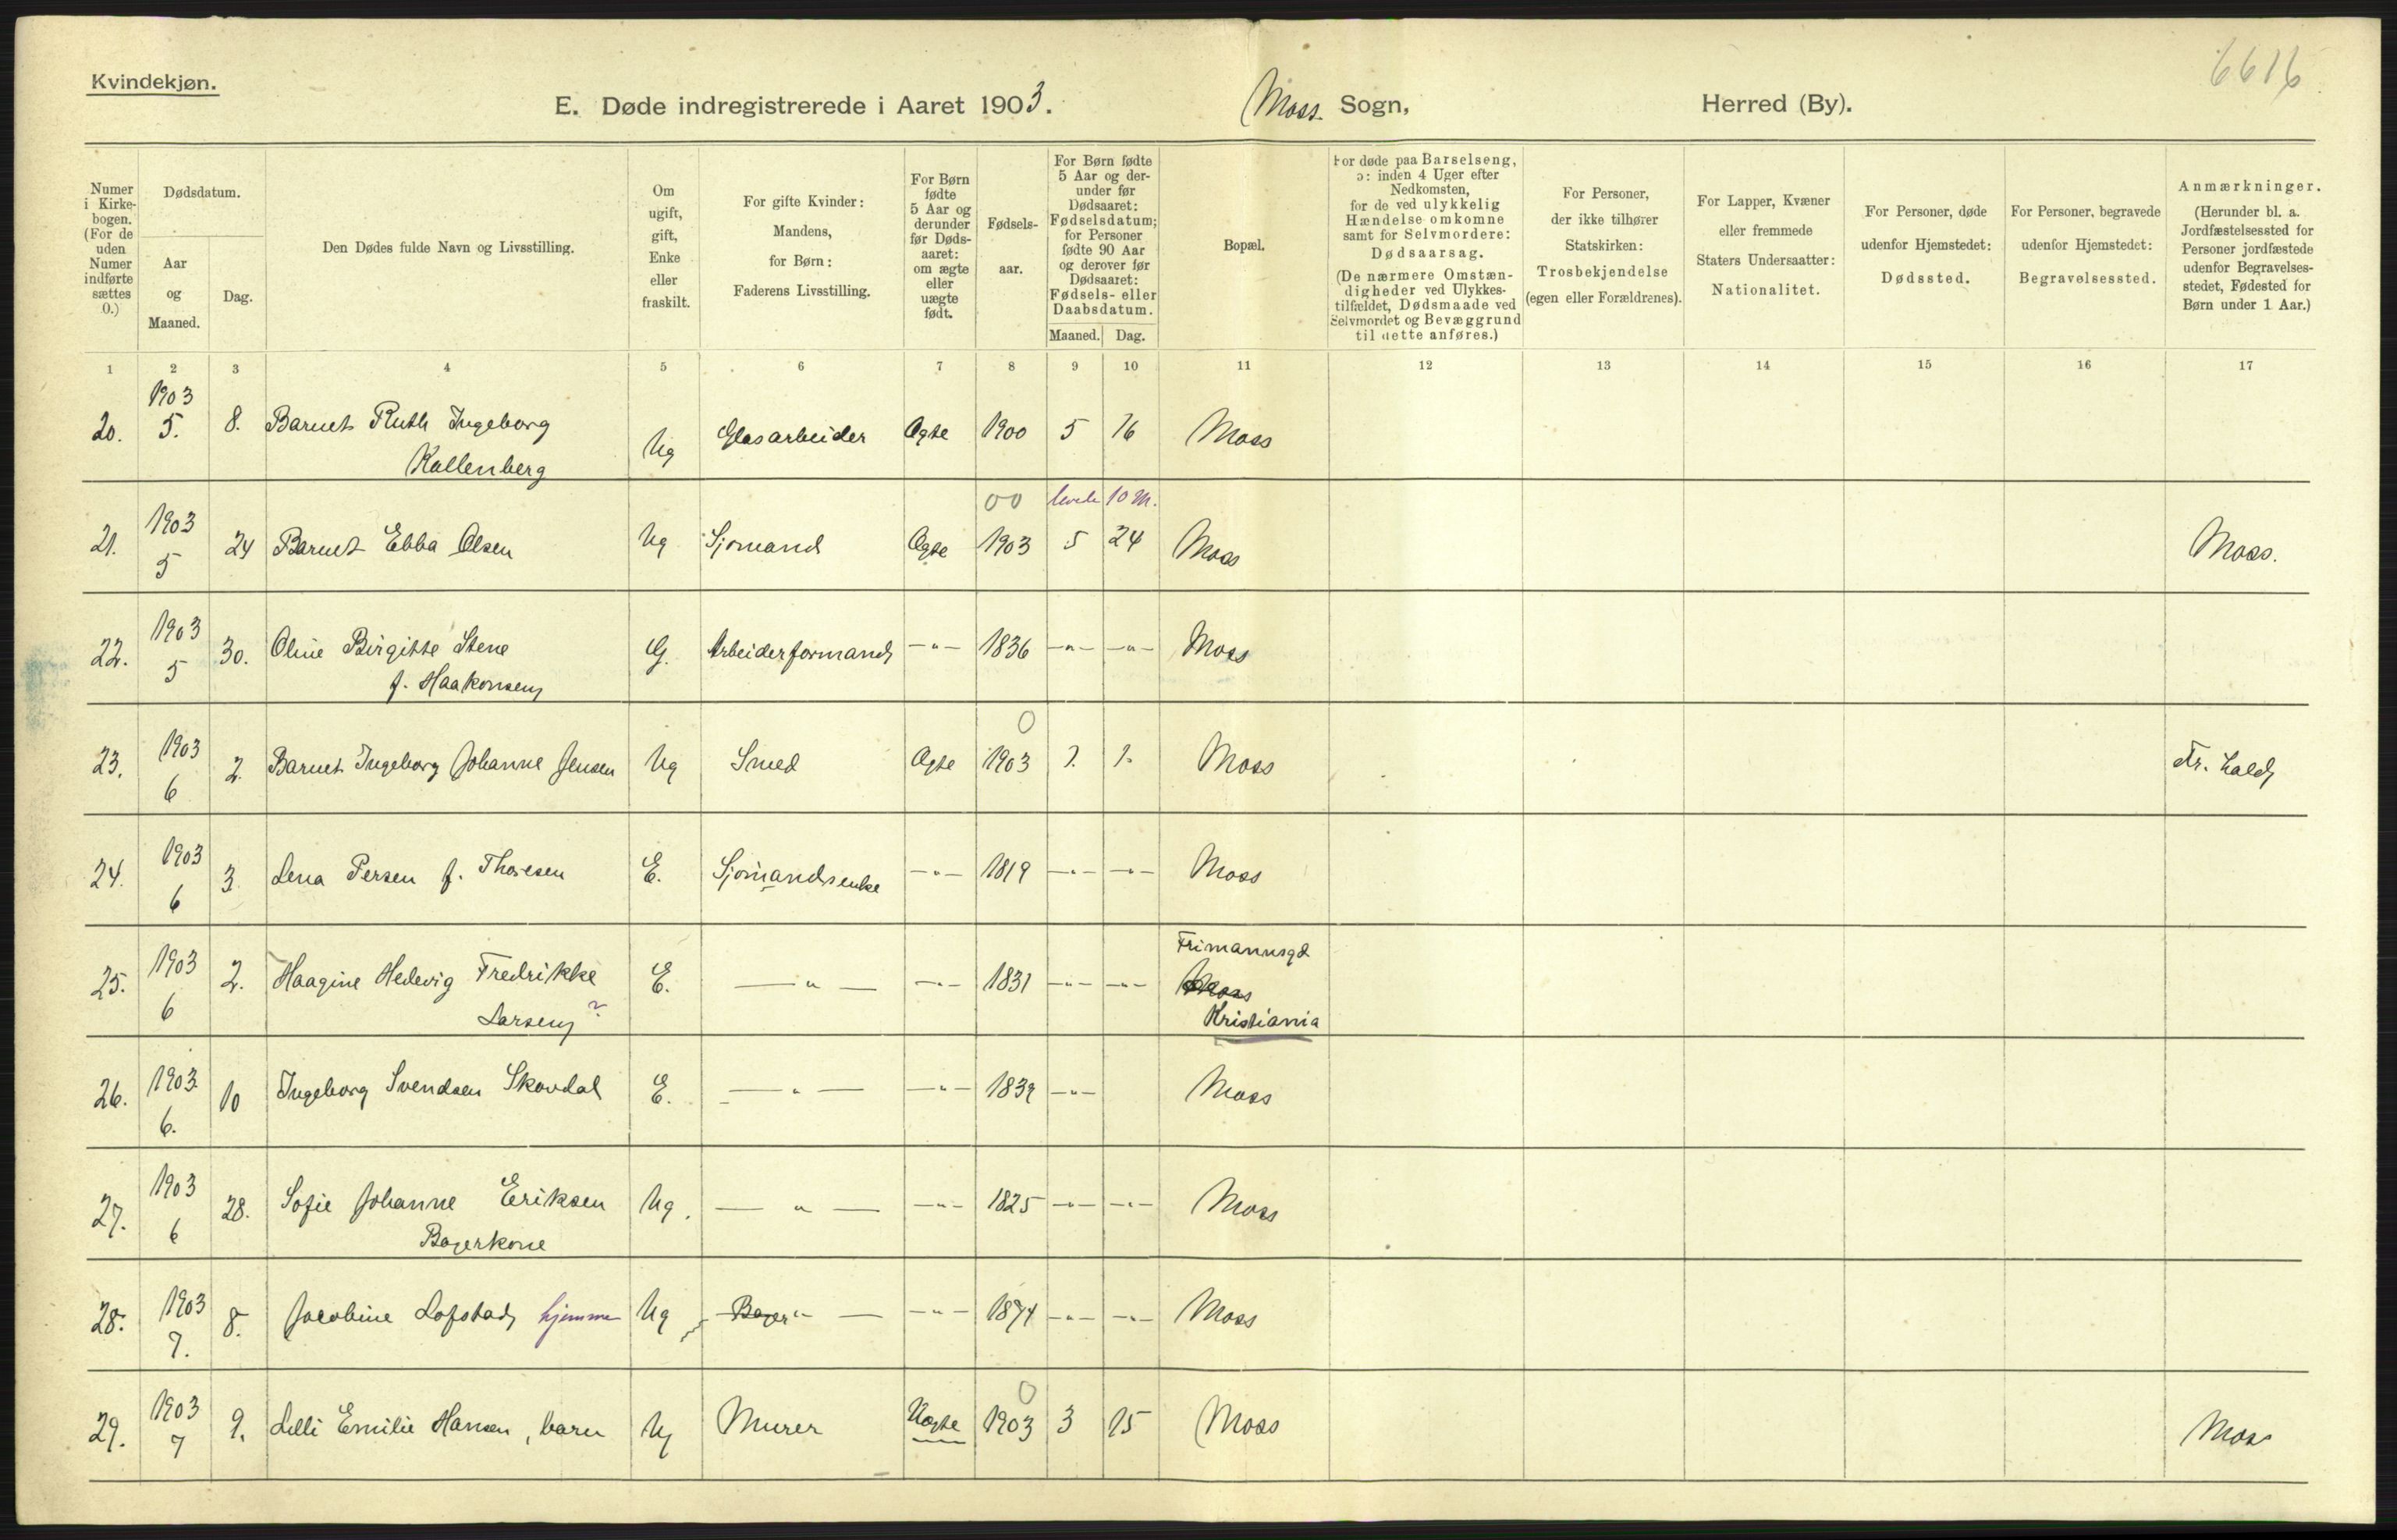 Kvindekjøn.
6616
E. Døde indregistrerede i Aaret 1903. Moss Sogn, Herred (By).
Numer i Kirkebogen. (For de uden Numer indførte sættes 0.)
Dødsdatum.
Aar og Maaned.
Dag.
Den Dødes fulde Navn og Livsstilling.
Om ugift, gift, Enke eller fraskilt.
For gifte Kvinder: Mandens, for Børn: Faderens Livsstilling.
For Børn fødte 5 Aar og derunder før Dødsaaret: om ægte eller uægte født.
Fødselsaar.
For Børn fødte 5 Aar og derunder før Dødsaaret: Fødselsdatum; for Personer fødte 90 Aar og derover før Dødsaaret: Fødsels- eller Daabsdatum.
Maaned. Dag.
Bopæl.
For døde paa Barselseng, ɔ: inden 4 Uger efter Nedkomsten, for de ved ulykkelig Hændelse omkomne samt for Selvmordere: Dødsaarsag. (De nærmere Omstændigheder ved Ulykkestilfældet, Dødsmaade ved Selvmordet og Bevæggrund til dette anføres.)
For Personer, der ikke tilhører Statskirken: Trosbekjendelse (egen eller Forældrenes).
For Lapper, Kvæner eller fremmede Staters Undersaatter: Nationalitet.
For Personer, døde udenfor Hjemstedet: Dødssted.
For Personer, begravede udenfor Hjemstedet: Begravelsessted.
Anmærkninger. (Herunder bl. a. Jordfæstelsessted for Personer jordfæstede udenfor Begravelsesstedet, Fødested for Børn under 1 Aar.)
1 2 3 4 5 6 7 8 9 10 11 12 13 14 15 16 17
20. 1903 5. 8. Barnet Ruth Ingeborg Kallenberg Ug Glasarbeider Ægte 1900 5 16 Moss
00 levede 10 M.
21. 1903 5 24 Barnet Ebba Olsen Ug Sjømand Ægte 1903 5 24 Moss Moss.
22. 1903 5 30. Oline Birgitte Stene f. Haakonsen G. Arbeiderformand -"- 1836 -"- -"- Moss
0
23. 1903 6 2. Barnet Ingeborg Johanne Jensen Ug Smed Ægte 1903 1. 1. Moss Fr. hald
24. 1903 6 3. Lena Persen f. Thoresen E. Sjømandsenke -"- 1819 -"- -"- Moss
25. 1903 6 2. Haagine Hedevig Fredrikke Larsen ? E. -"- -"- 1831 -"- -"- Frimannsgd Moss Kristiania
26. 1903 6. 10 Ingeborg Svendsen Skovdal E. -"- -"- 1839 -"- Moss
27. 1903 6 28. Sofie Johanne Eriksen Bagerkone Ug. -"- -"- 1825 -"- -"- Moss
28. 1903 7. 8. Jacobine Lofstad hjemme Ug Bager "- -"- 1874 -"- -"- Moss
0
29. 1903 7 9. Lilli Emilie Hansen, barn Ug Murer Uægte 1903 3 15 Moss Moss